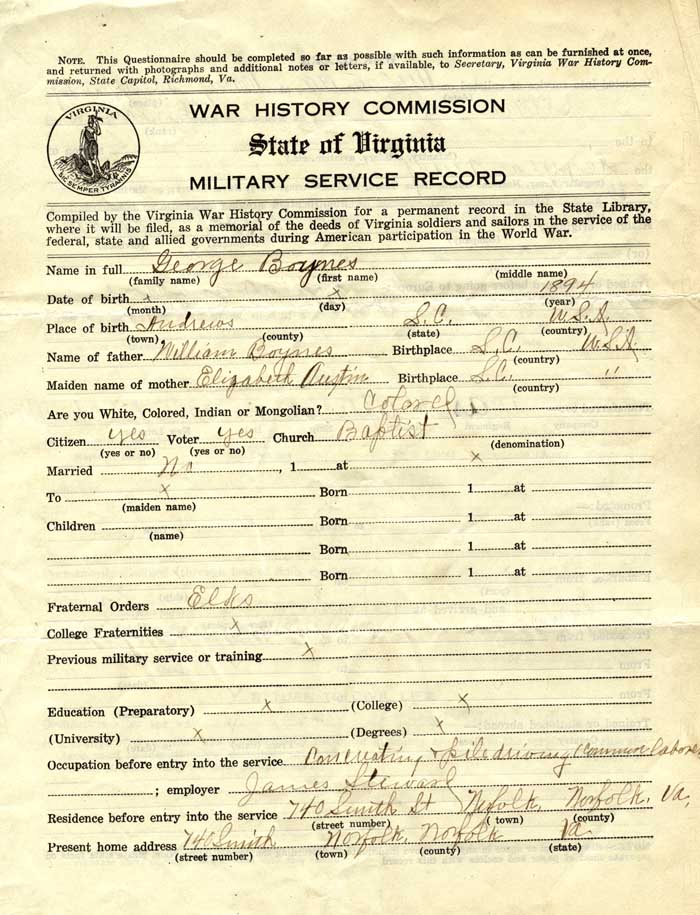 NOTE. This Questionnaire should be completed so far as possible with such information as can be furnished at once,
and returned with photographs and additional notes or letters, if available, to Secretary, Virginia War History Com-
mission, State Capitol, Richmond, Va.
VIRGINIA
SIC SEMPER TYRANNIS
WAR HISTORY COMMISSION
State of Virginia
MILITARY SERVICE RECORD
Compiled by the Virginia War History Commission for a permanent record in the State Library,
where it will be filed, as a memorial of the deeds of Virginia soldiers and sailors in the service of the
federal, state and allied governments during American participation in the World War.
Name in full George Boynes
(family name) (first name) (middle name)
Date of birth x x 1894
(month) (day) (year)
Place of birth Andrews S.C. U.S.A.
(town) (county) (state) (country)
Name of father William Boynes Birthplace S.C. U.S.A.
(country)
Maiden name of mother Elizabeth Austin Birthplace S.C. "
(country)
Are you White, Colored, Indian or Mongolian? Colored
Citizen yes Voter yes Church Baptist
(yes or no) (yes or no) (denomination)
Married No , 1 at x
To x Born 1 at
(maiden name)
Children Born 1 at
(name)
Born 1 at
Born 1 at
Fraternal Orders Elks
College Fraternities x
Previous military service or training x
Education (Preparatory) x (College) x
(University) x (Degrees) x
Occupation before entry into the service Concreating & pile driving (common labore
; employer James Stewart
Residence before entry into the service 740 Smith St Norfolk, Norfolk, Va
(street number) (town) (county)
Present home address 740 Smith Norfolk, Norfolk Va.
(street number) (town) (county) (state)